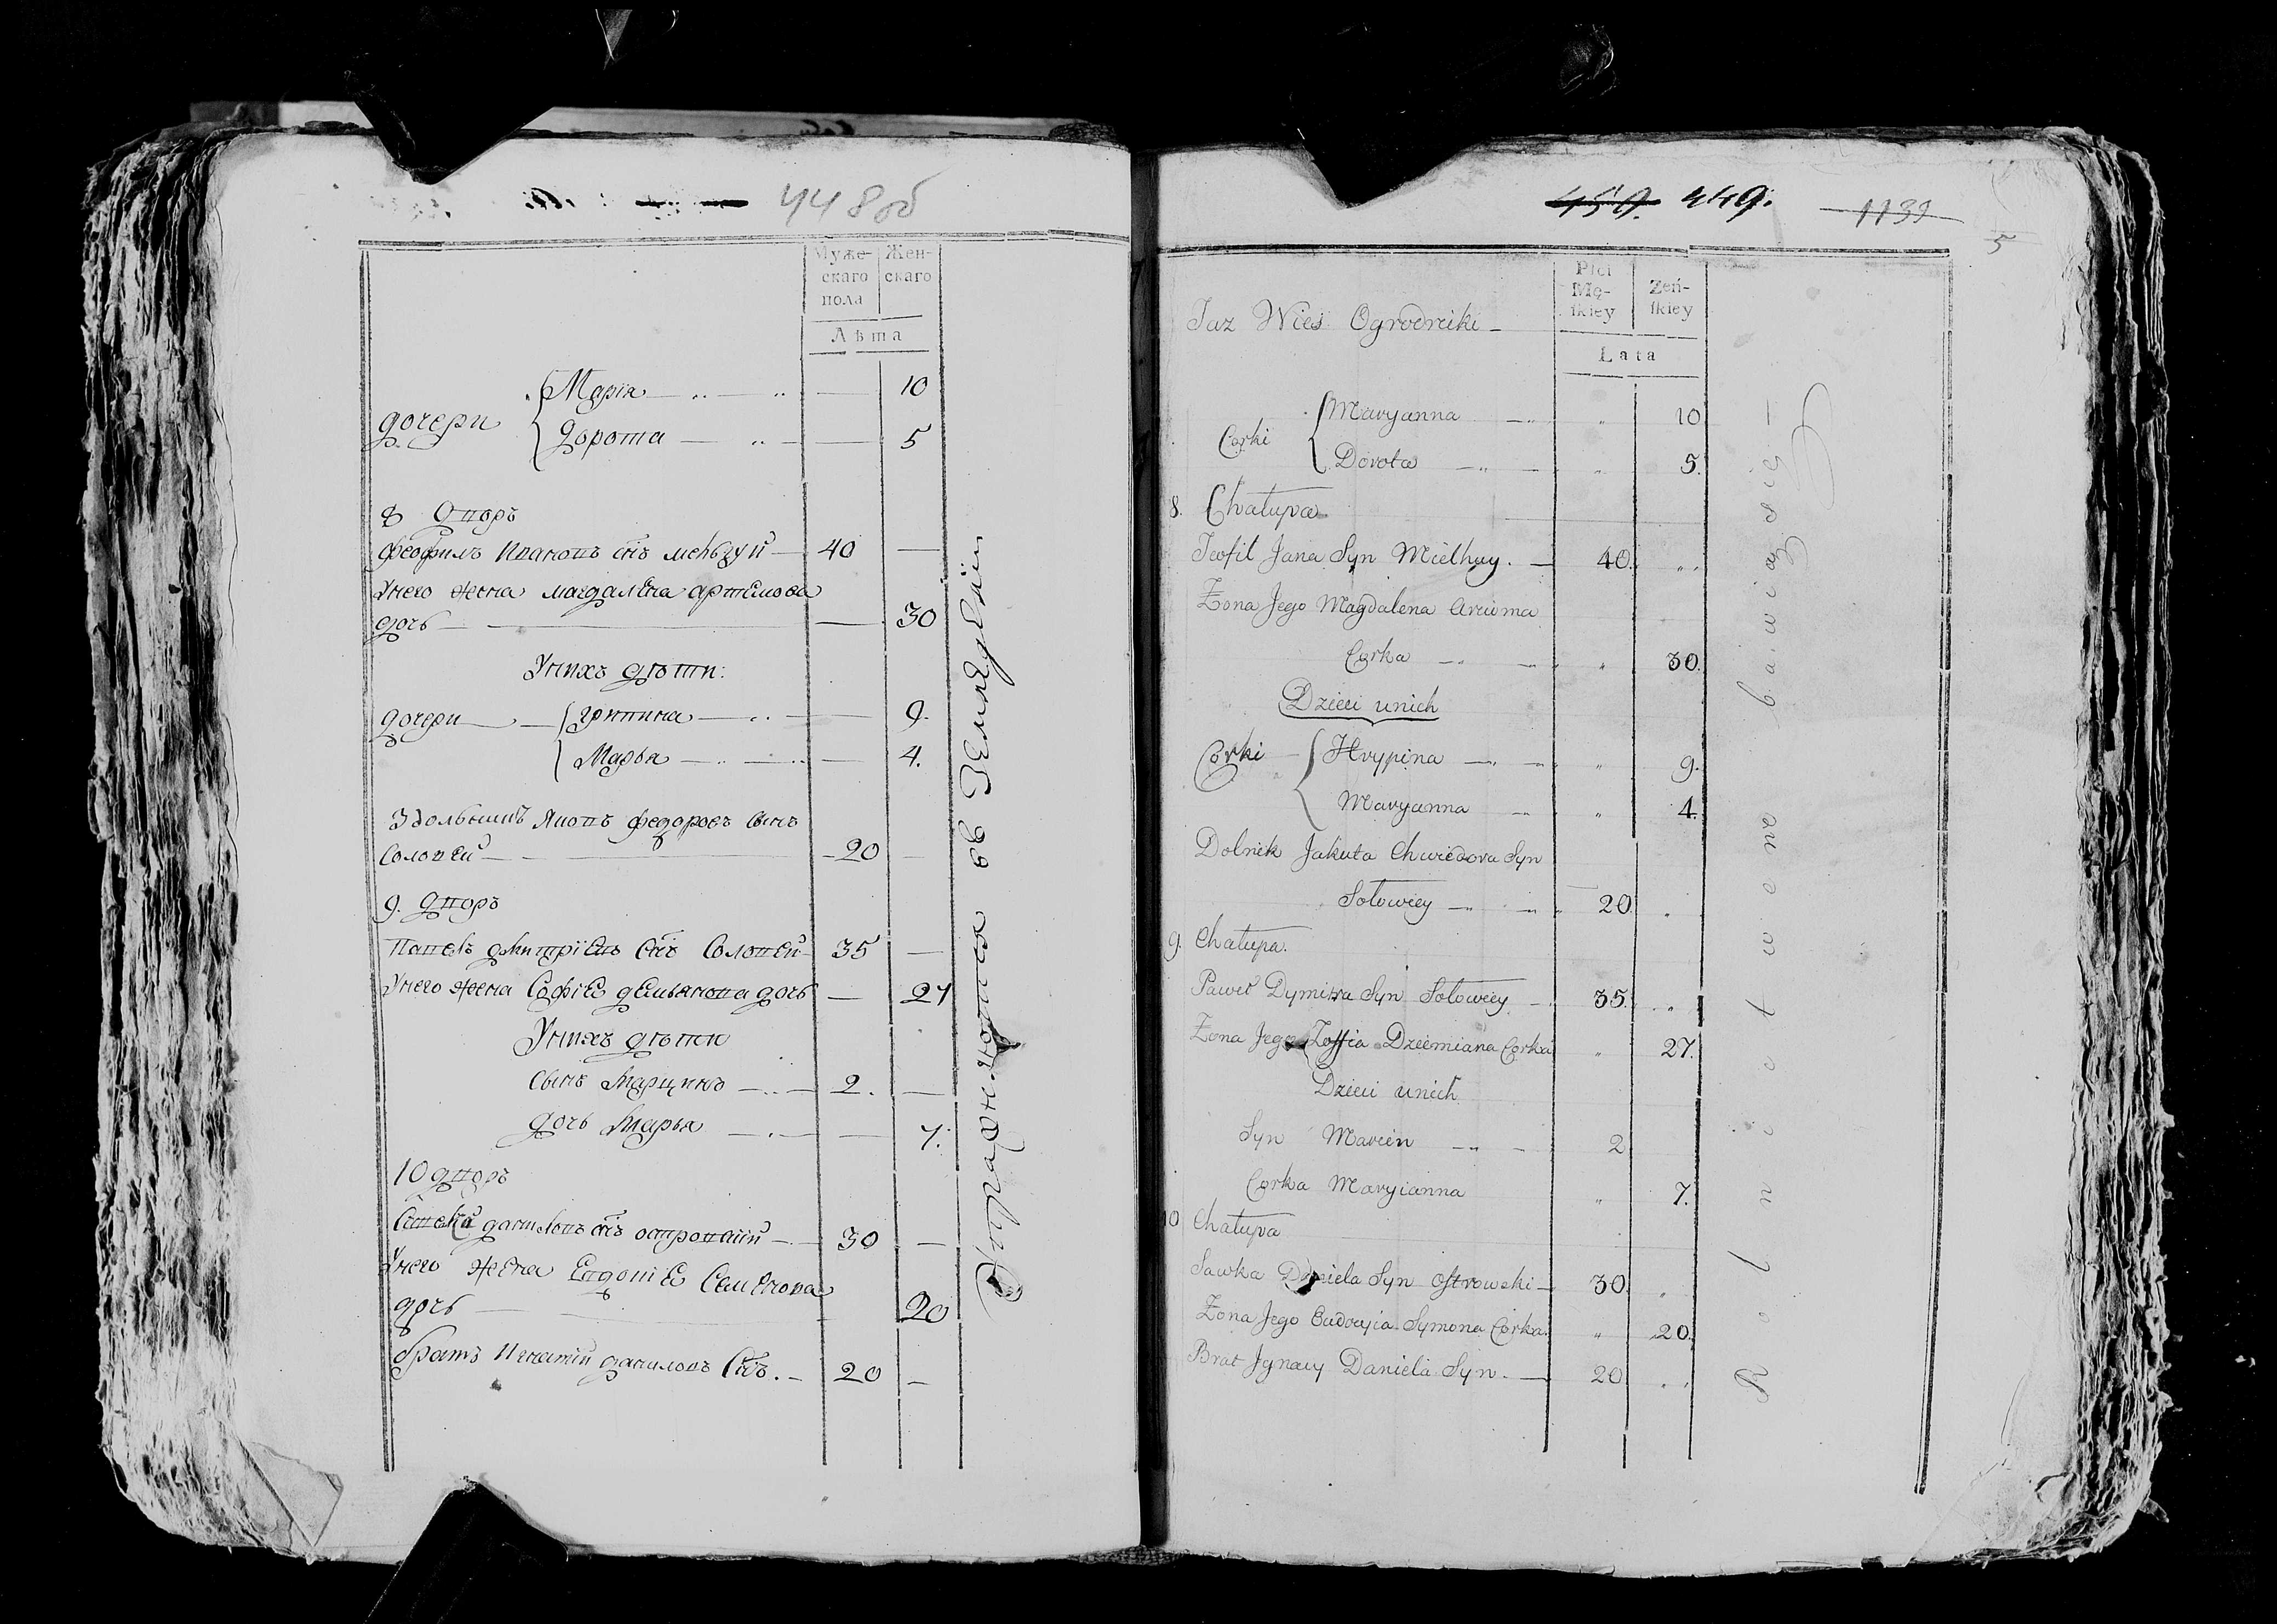 448об
Муже-
скаго
пола
Жен-
скаго
Лѣта
дочери
Марія 10
Дорота 5
8 Дворъ
Феофилъ Ивановъ снъ 40
Унего жена Магдалена Артемова
дочь 30
Унихъ дѣти:
дочери Грипина 9.
Марья 4.
Федоровъ сынъ
Соловей 20
9. Дворъ
Павелъ Дмитріевъ снъ Соловей 35
Унего жена Софіе Демьянова дочь 27
Унихъ дѣти
сынъ Марцинъ 2.
дочь Марья 7.
10 дворъ
Даниловъ снъ Островскій 30
Унего жена Евдокіе Семенова
дочь 20
братъ Игнатій Даниловъ Снъ. 20
Упражняются въ Земледеліи
450. 449.
1139
5
Płci
Mę-
skiey
Żeń-
skiey
Lata
Taż Wieś Ogrodniki
Corki
Maryanna 10
Dorota 5.
8. Chałupa
Teofil Jana Syn Mielhuy. 40.
Zona Jego Magdalena Arcioma
Corka 30.
Dzieci unich
Corki Hrypina 9.
Maryanna 4.
Dolnik Jakuta Chwiedora Syn
Sołowiey 20
9. Chałupa.
Paweł Dymitra Syn Sołowiey 35.
Zona Jego Zoffia Dziemiana Corka 27.
Dzieci unich
Syn Marcin 2
Corka Maryianna 7.
10 Chałupa
Sawka Daniela Syn Ostrowski 30.
Zona Jego Eudocyia Symona Corka. 20.
Brat Jgnacy Daniela Syn. 20
Rolnictwem bawią się